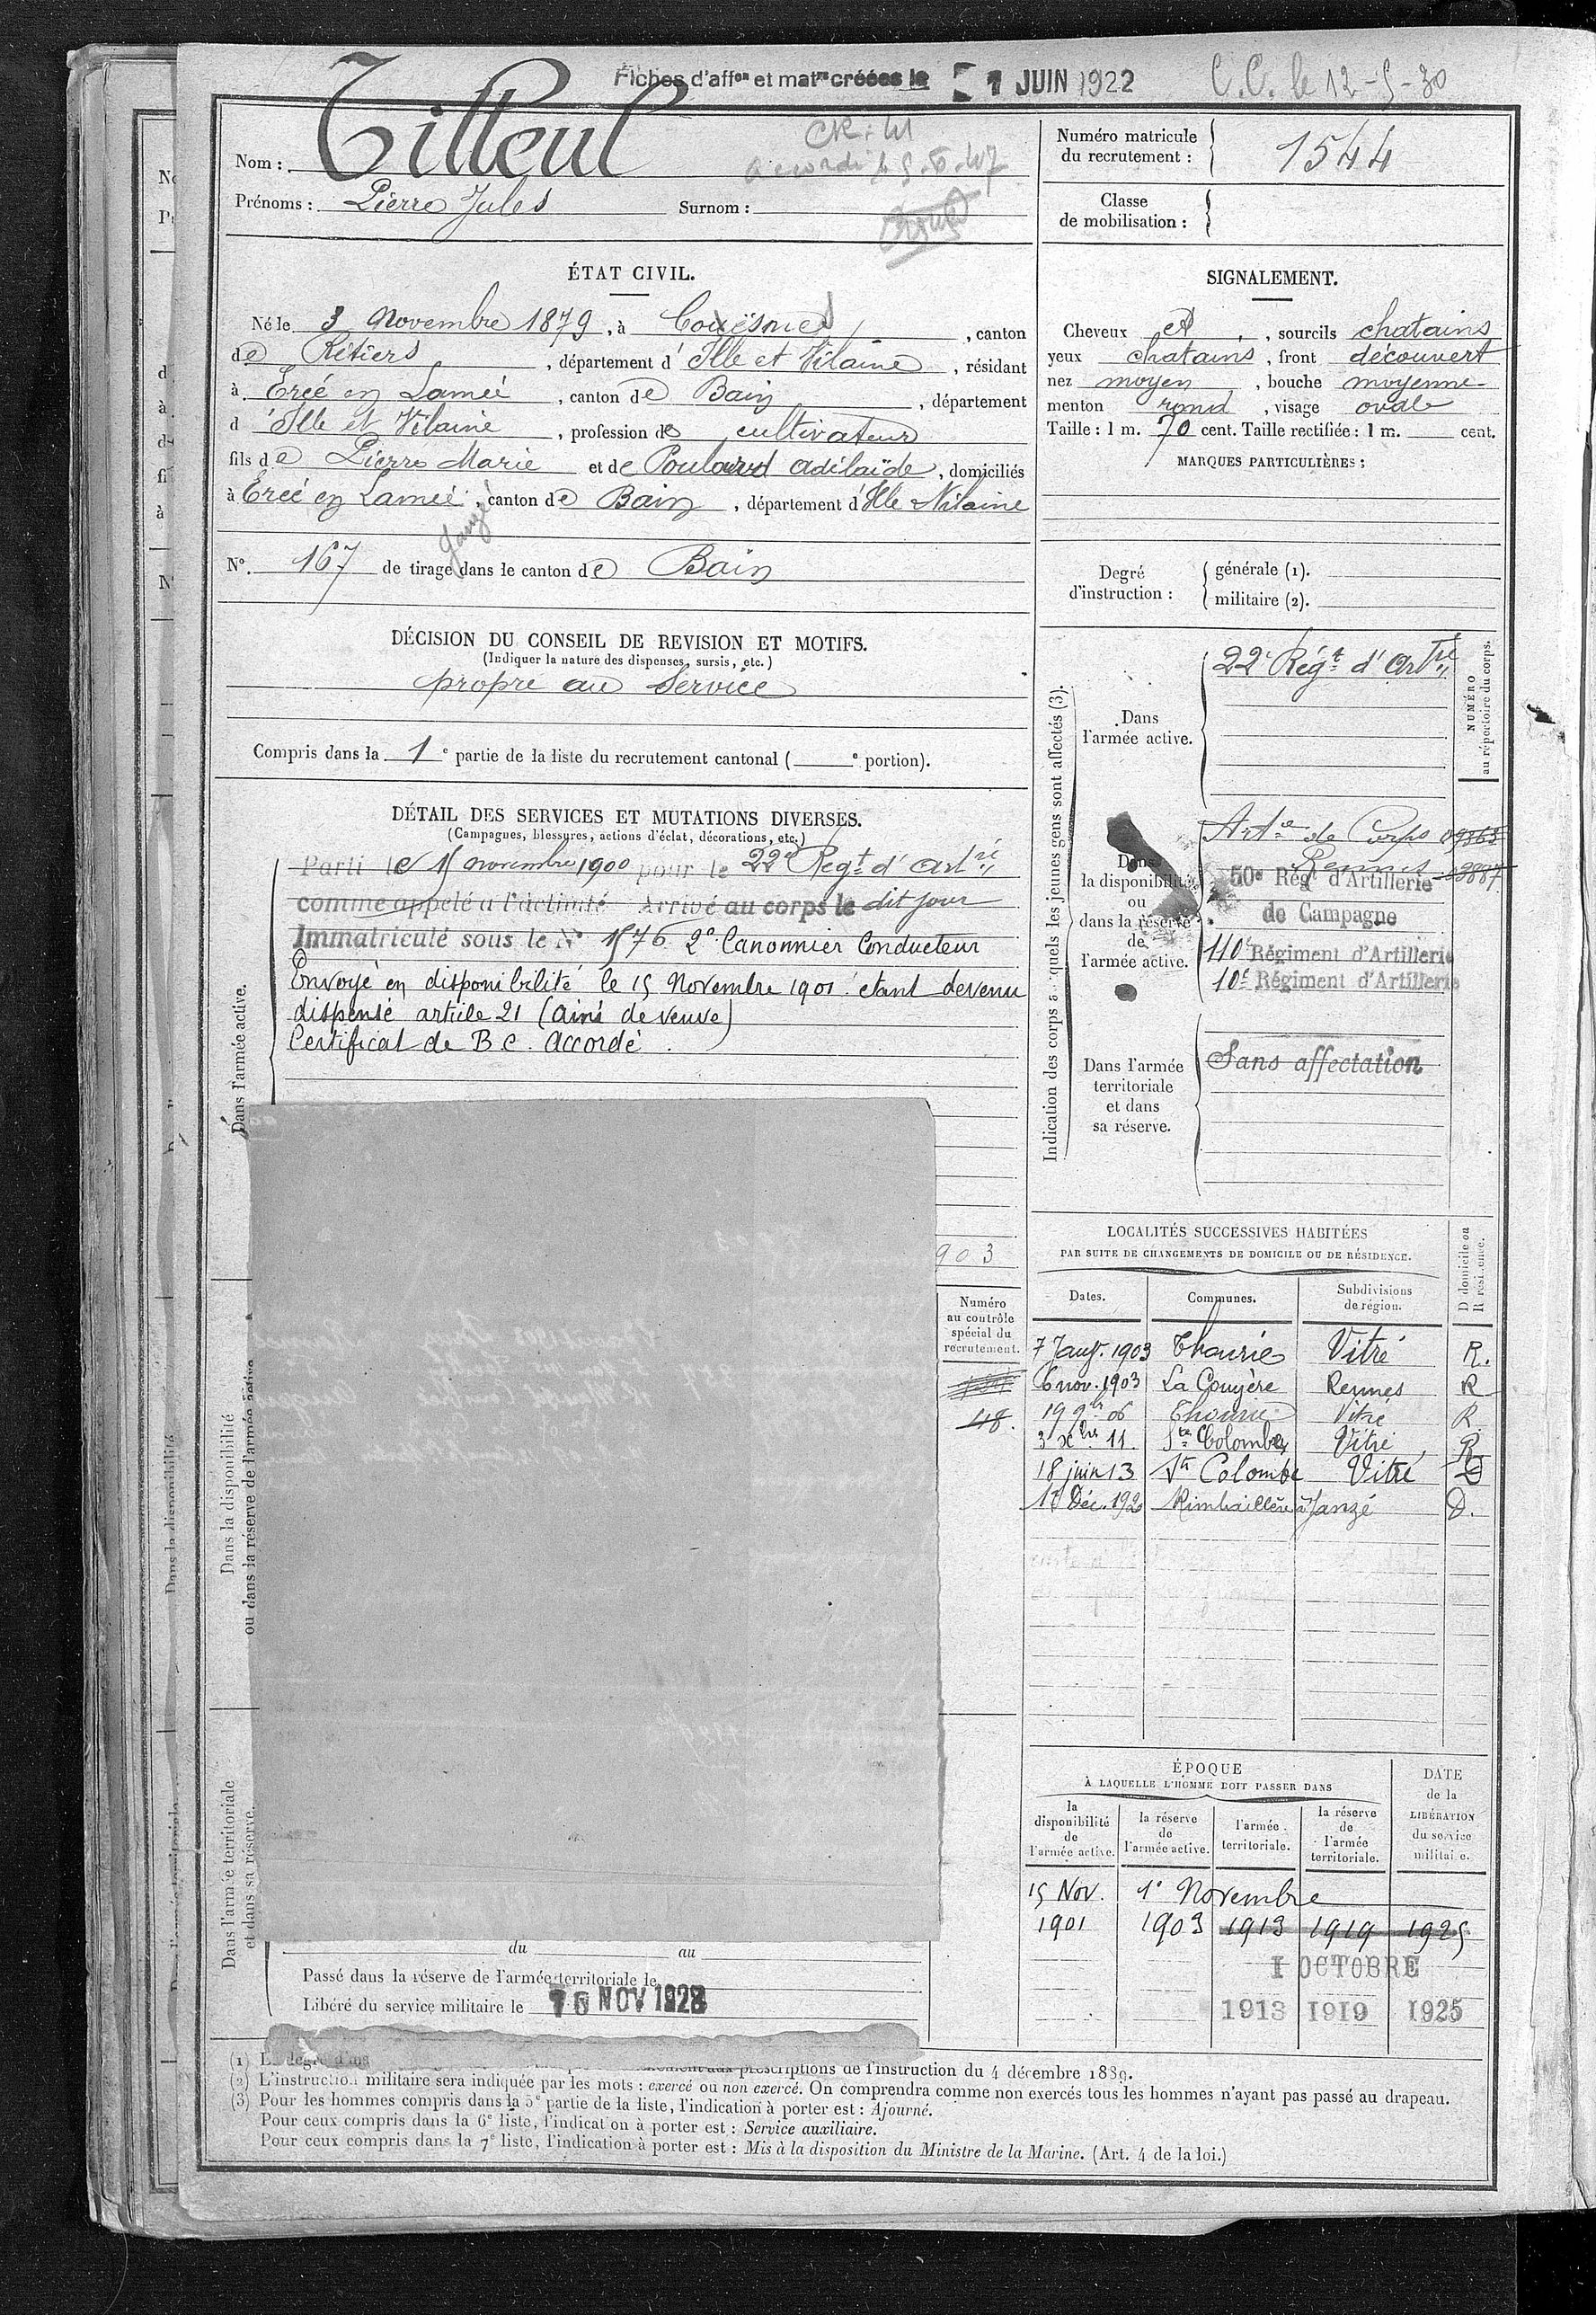 Fiches d'affon et matre créées le 1 JUIN 1922
C.C. le 12-5-30
Nom : Tilleul
CR : 41
accordé le 5.6.47
Prénoms : Pierre Jules Surnom :
Numéro matricule du recrutement : 1544
Classe de mobilisation :
ÉTAT CIVIL.
Né le 3 Novembre 1879, à Coësmes, canton
de Rétiers, département d'Ille et Vilaine, résidant
à Ercé en Lamée, canton de Bain, département
d'Ille et Vilaine, profession de cultivateur
fils de Pierre Marie et de Poulard Adélaïde, domiciliés
à Ercé en Lamée, canton de Bain, département d'Ille & Vilaine
Janzé
N° 167 de tirage dans le canton de Bain
SIGNALEMENT.
Cheveux et, sourcils chatains
yeux chatains, front découvert
nez moyen, bouche moyenne
menton rond, visage ovale
Taille : 1 m. 70 cent. Taille rectifiée : 1 m. cent.
MARQUES PARTICULIÈRES :
Degré d'instruction : générale (1).
militaire (2).
DÉCISION DU CONSEIL DE REVISION ET MOTIFS.
(Indiquer la nature des dispenses, sursis, etc.)
propre au Service
Compris dans la 1e partie de la liste du recrutement cantonal ( e portion).
DÉTAIL DES SERVICES ET MUTATIONS DIVERSES.
(Campagnes, blessures, actions d'éclat, décorations, etc.)
Dans l'armée active.
Parti le 15 novembre 1900 pour le 22e Regt d'artie
comme appelé à l'activité Arrivé au corps le dit jour
Immatriculé sous le N° 1576 2e Canonnier Conducteur
Envoyé en disponibilité le 15 Novembre 1901 étant devenu
dispensé article 21 (ainé de veuve)
Certificat de B C. Accordé.
903
Numéro
au contrôle
spécial du
recrutement.
48.
Dans la disponibilité
ou dans la réserve de l'armée active
Dans l'armée territoriale
et dans sa réserve.
du au
Passé dans la réserve de l'armée territoriale le
Libéré du service militaire le NOV 1928
Indication des corps quels les jeunes gens sont affectés (3).
NUMÉRO
au répertoire du corps.
Dans
l'armée active.
22e Régt d'Artie
Dans
la disponibilité
ou
dans la réserve
de
l'armée active.
Artie de Corps 09863
Rennes 03887
50e Rég d'Artillerie
de Campagne
110e Régiment d'Artillerie
10e Régiment d'Artillerie
Dans l'armée
territoriale
et dans
sa réserve.
Sans affectation
LOCALITÉS SUCCESSIVES HABITÉES
PAR SUITE DE CHANGEMENTS DE DOMICILE OU DE RÉSIDENCE.
Dates. Communes. Subdivisions de région. D domicile ou R résidence.
7 Janv. 1903 Thourie Vitré R.
6 nov. 1903 La Couyère Rennes R
19 9bre 06 Thourie Vitré R
3 Xbre 11. Ste Colombe Vitré R
18 juin 13 Ste Colombe Vitré D
17 Déc. 1920 à Janzé D.
ÉPOQUE
À LAQUELLE L'HOMME DOIT PASSER DANS
DATE
de la
LIBÉRATION
du service
militaire.
la
disponibilité
de
l'armée active.
la réserve
de
l'armée active.
l'armée
territoriale.
la réserve
de
l'armée
territoriale.
15 Nov. 1er Novembre
1901 1903 1913 1919 1925
1 OCTOBRE
1913 1919 1925
(1) Le degré prescriptions de l'instruction du 4 décembre 1889.
(2) L'instruction militaire sera indiquée par les mots : exercé ou non exercé. On comprendra comme non exercés tous les hommes n'ayant pas passé au drapeau.
(3) Pour les hommes compris dans la 5e partie de la liste, l'indication à porter est : Ajourné.
Pour ceux compris dans la 6e liste, l'indication à porter est : Service auxiliaire.
Pour ceux compris dans la 7e liste, l'indication à porter est : Mis à la disposition du Ministre de la Marine. (Art. 4 de la loi.)